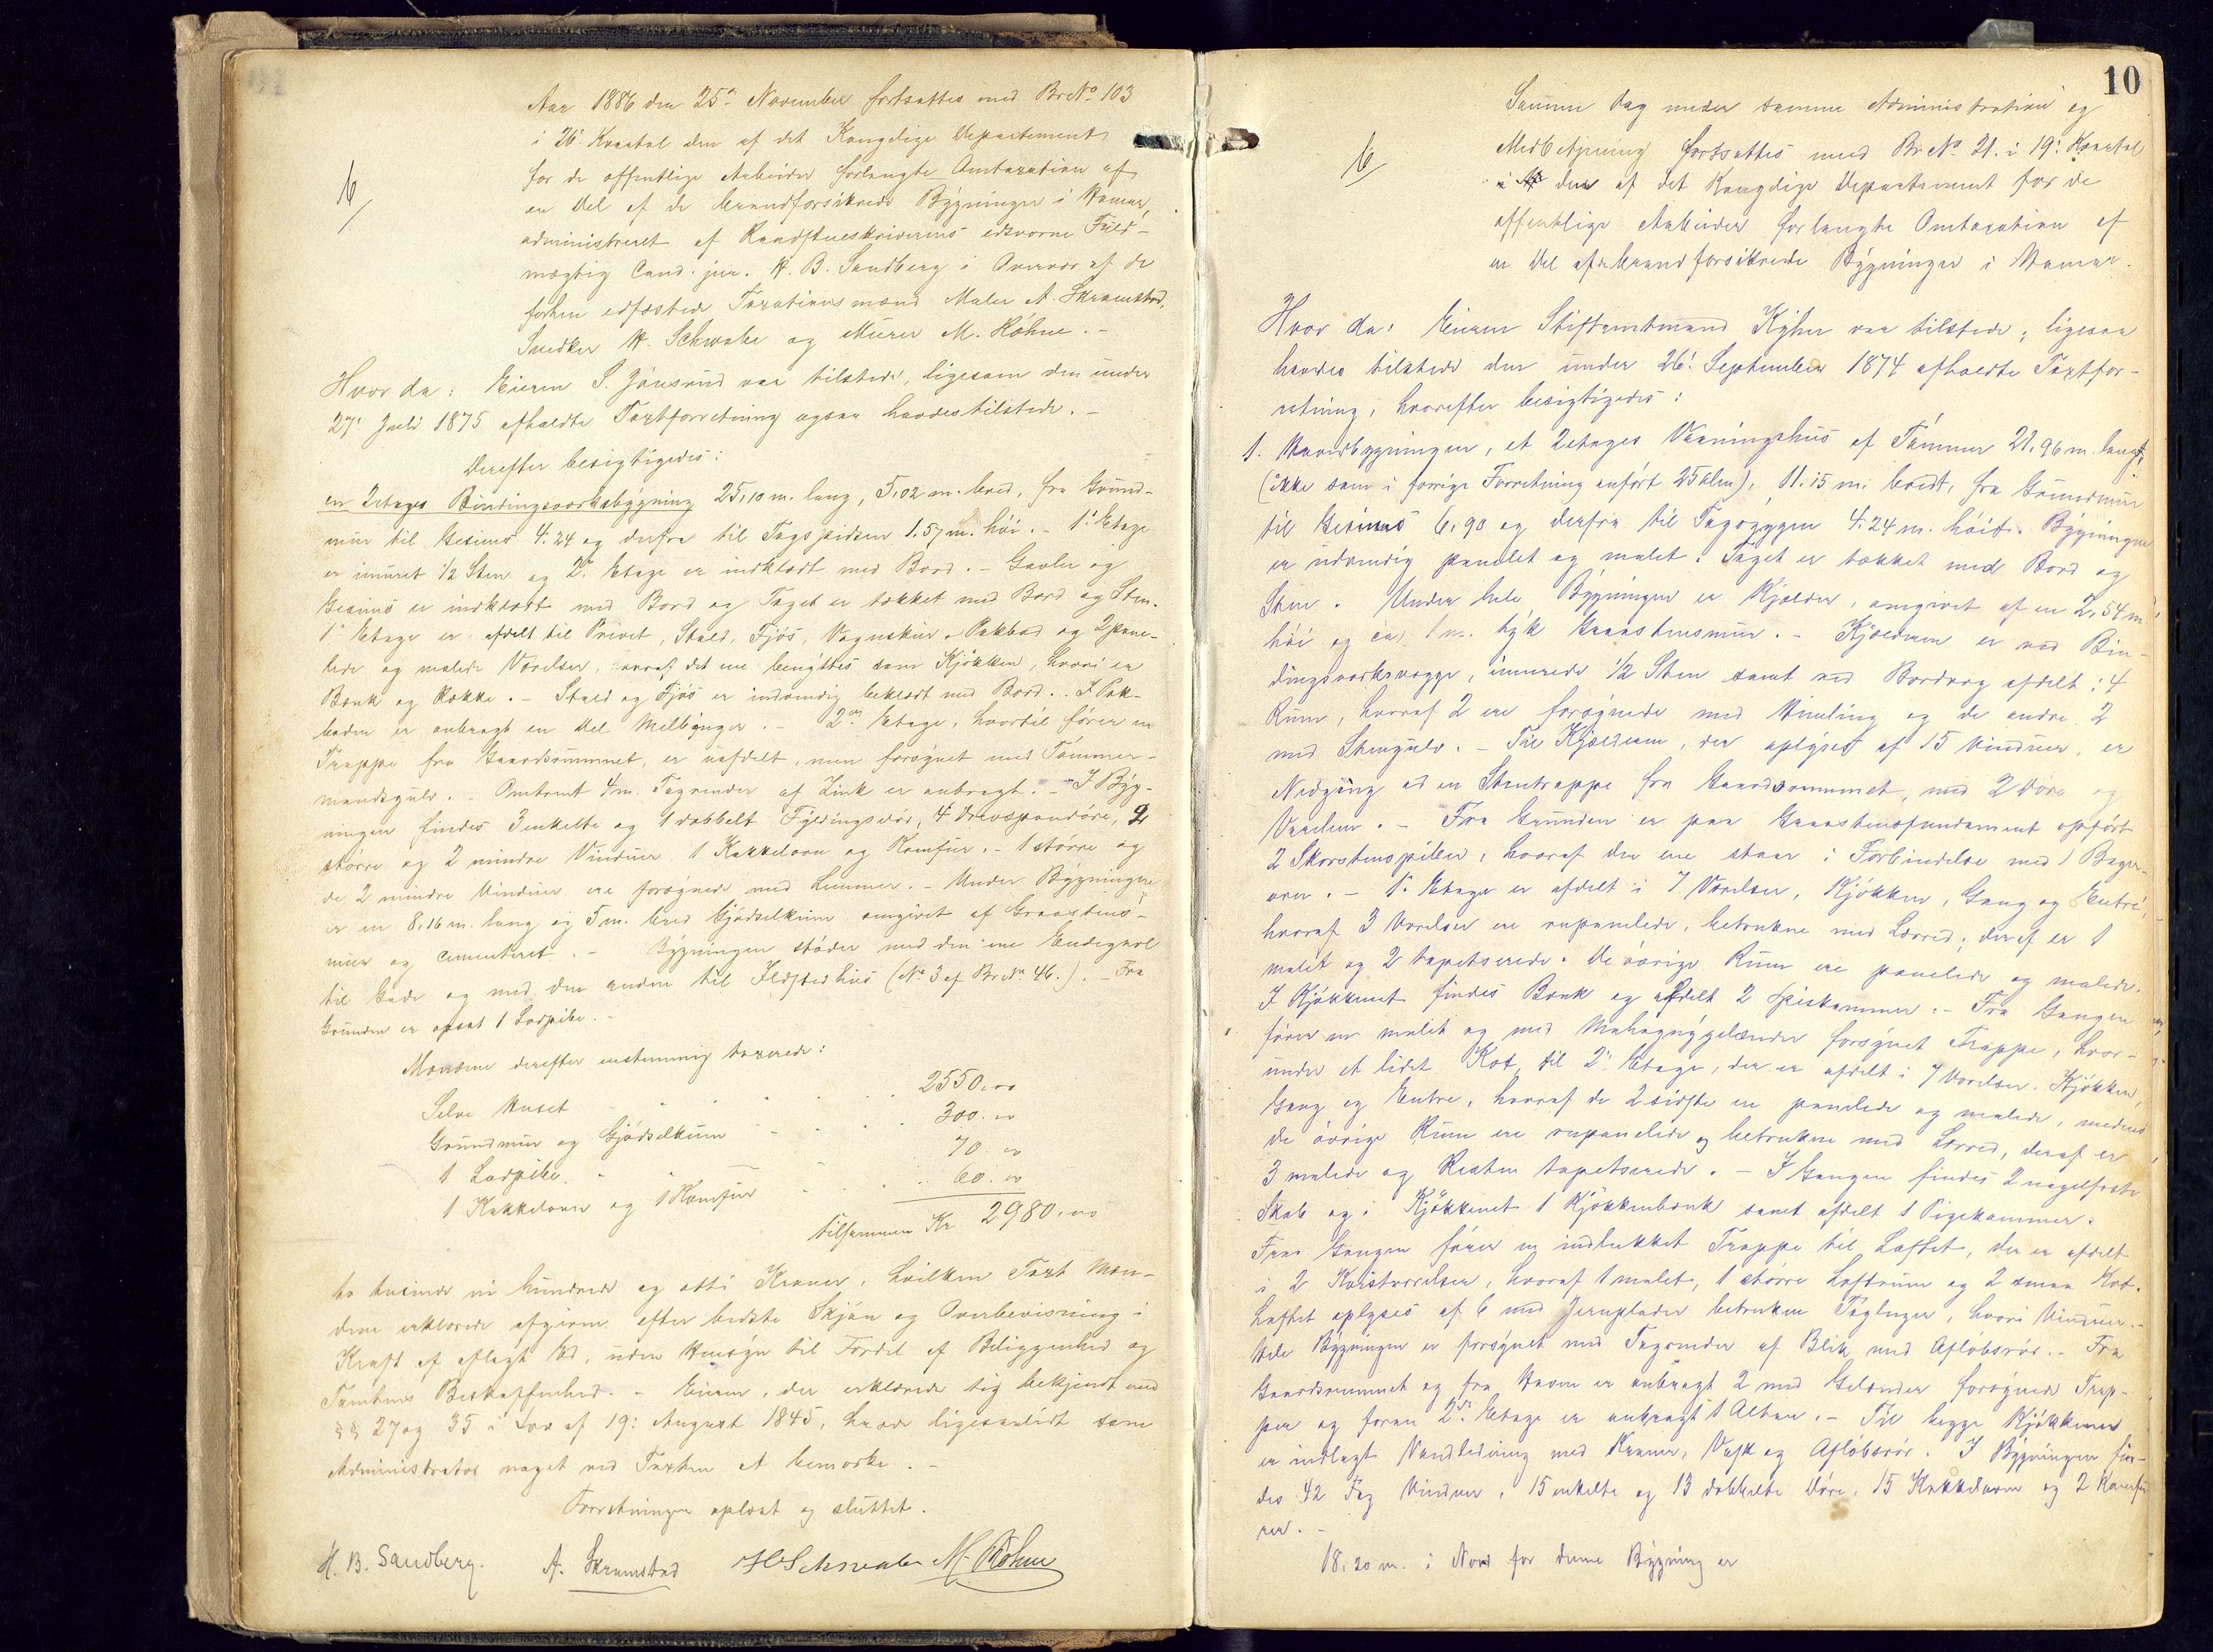 Aar 1886 den 25de November fortsattes med BrNo 103
i 26' Kvartal den af det Kongelige Departement
for de offentlige Arbeider forlangte Omtaxation af
en Del af de brandforsikrede Bygninger i Hamar,
administreret af Raadstueskriverens edsvorne Fuld-
mægtig Cand. jur. H. B. Sandberg i Overvær af de
forhen edfæstede Taxationsmænd Maler A. Skramstad,
Snedker H. Schwabe og Murer M. Röhne. -
6
Hvor da: Eieren S. Jönsrud var tilstede, ligesom den under
27' Juli 1875 afholdte Taxtforretning ogsaa havdes tilstede. -
Derefter besigtigedes:
en 2etages Bindingsværksbygning 25,10 m. lang, 5,02 m. bred, fra Grund-
mur til Gesims 4.24 og derfra til Tagspidsen 1.57 m. höi. - 1' Etage
er muret 1/2 Sten og 2den Etage er indklædt med Bord. - Gavler og
Gesims er indklædt med Bord og Taget er tækket med Bord og Sten.
1' Etage er afdelt til Privet, Stald, Fjös, Vognskur, Pakbod og 2 pane-
lede og malede Værelser, hvoraf det ene benyttes som Kjökken, hvori er
Bænk og Række. - Stald og Fjös er indvendig beklædt med Bord. - I Pak-
boden er anbragt en Del Melbinger. - 2den Etage, hvortil fører en
Trappe fra Gaardsrummet, er uafdelt, men forsynet med Tömmer-
mandsgulv. - Omtrent 4 m. Tagrender af Zink er anbragt. - I Byg-
ningen findes 3 enkelte og 1 dobbelt Fyldingsdör, 4 Drevspandöre, 9
större og 2 mindre Vinduer 1 Kakkelovn og Komfur. - 1 större og
de 2 mindre Vinduer ere forsynede med Lemmer. - Under Bygningen
er en 8,16 m. lang og 5 m. bred Gjödselkum omgivet af Graastens-
mur og cementeret. - Bygningen stöder med den ene Endegavl
til Gade og med den anden til Ildstedhus (No 3 af BrNo 46.). - Fra
Grunden er opsat 1 Lodpibe. -
Mændene derefter enstemmig taxerede:
Selve Huset 2550,00
Grundmur og Gjödselkum 300.00
1 Lodpibe. 70.00
1 Kakkelovn og 1 Komfur 60.00
tilsammen Kr 2980,00
to tusinde ni hundrede og otti Kroner, hvilken Taxt Mæn-
dene erklærede afgiven efter bedste Skjön og Overbevisning i
Kraft af aflagt Ed, uden Hensyn til Fordel af Beliggenhed og
Tomtens Beskaffenhed. - Eieren, der erklærede sig bekjendt med
§§ 27 og 35 i Lov af 19: August 1845, havde ligesaalidt som
Administrator noget ved Taxten at bemærke. -
Forretningen oplæst og sluttet.
H. B. Sandberg. A. Skramstad H Schwabe M. Röhne
10
Samme Dag under samme Administration og
Medbetjening fortsattes med BrNo 21. i 19: Kvartal
den af det Kongelige Departement for de
offentlige Arbeider forlangte Omtaxation af
en Del af de brandforsikrede Bygninger i Hamar.
6
Hvor da: Eieren Stiftamtmand Kjher var tilstede; ligesaa
havdes tilstede den under 26: September 1874 afholdte Taxtfor-
retning, hvorefter besigtigedes:
1. Hovedbygningen, et 2etages Vaaningshus af Tömmer 21,96 m. langt
(ikke som i forrige Forretning anfört 25 Alm), 11.15 m. bredt, fra Grundmur
til Gesims 6,90 og derfra til Tagryggen 4.24 m. höit. Bygningen
er udvendig panelet og malet. Taget er tækket med Bord og
Sten. Under hele Bygningen er Kjælder, omgivet af en 2,54 m.
höi og ca. 1 m. tyk Graastensmur. - Kjælderen er ved Bin-
dingsværksvægge, murede 1/2 Sten samt ved Bordvæg afdelt i 4
Rum, hvoraf 2 ere forsynede med Himling og de andre 2
med Stengulv. - Til Kjælderen, der oplyses af 15 Vinduer, er
Nedgang ad en Stentrappe fra Gaardsrummet, med 2 Döre og
Vaaslem. - Fra Grunden er paa Graastensfundament opfört
2 Skorstenspiber, hvoraf den ene staar i Forbindelse med 1 Bager-
ovn. - 1' Etage er afdelt i 7 Værelser, Kjökken, Gang og Entré,
hvoraf 3 Værelser ere rupanelede, betrukne med Lærred; deraf er 1
malet og 2 tapetserede. De övrige Rum ere panelede og malede.
I Kjökkenet findes Bænk og afdelt 2 Spiskammer. - Fra Gangen
förer en malet og med Mahognygelænder forsynet Trappe, hvor-
under et lidet Kot, til 2' Etage, der er afdelt i 7 Værelser, Kjökken,
Gang og Entre, hvoraf de 2 sidste er panelede og malede, medens
de övrige Rum ere rupanelede og betrukne med Lærred, deraf er
3 malede og Resten tapetserede. - I Gangen findes 2 nagelfaste
Skab og i Kjökkenet 1 Kjökkenbænk samt afdelt 1 Pigekammer.
Fra Gangen förer en indlukket Trappe til Loftet, der er afdelt
i 2 Kvistværelser, hvoraf 1 malet, 1 större Loftrum og 2 smaa Kot.
Loftet oplyses af 6 med Jernplader betrukne Taglugær, hvori Vinduer. -
Hele Bygningen er forsynet med Tagrender af Blik med Aflöbsrör. - Fra
Gaardsrummet og fra Haven er anbragt 2 med Gelænder forsynede Trap-
per og foran 2den Etage er anbragt 1 Altan. - Til begge Kjökkener
er indlagt Vandledning med Kraner, Vask og Aflöbsrör. I Bygningen fin-
des 42 Fag Vinduer, 15 enkelte og 13 dobbelte Döre, 15 Kakkelovne og 2 Komfu-
rer. -
18,20 m. i Nord for denne Bygning er